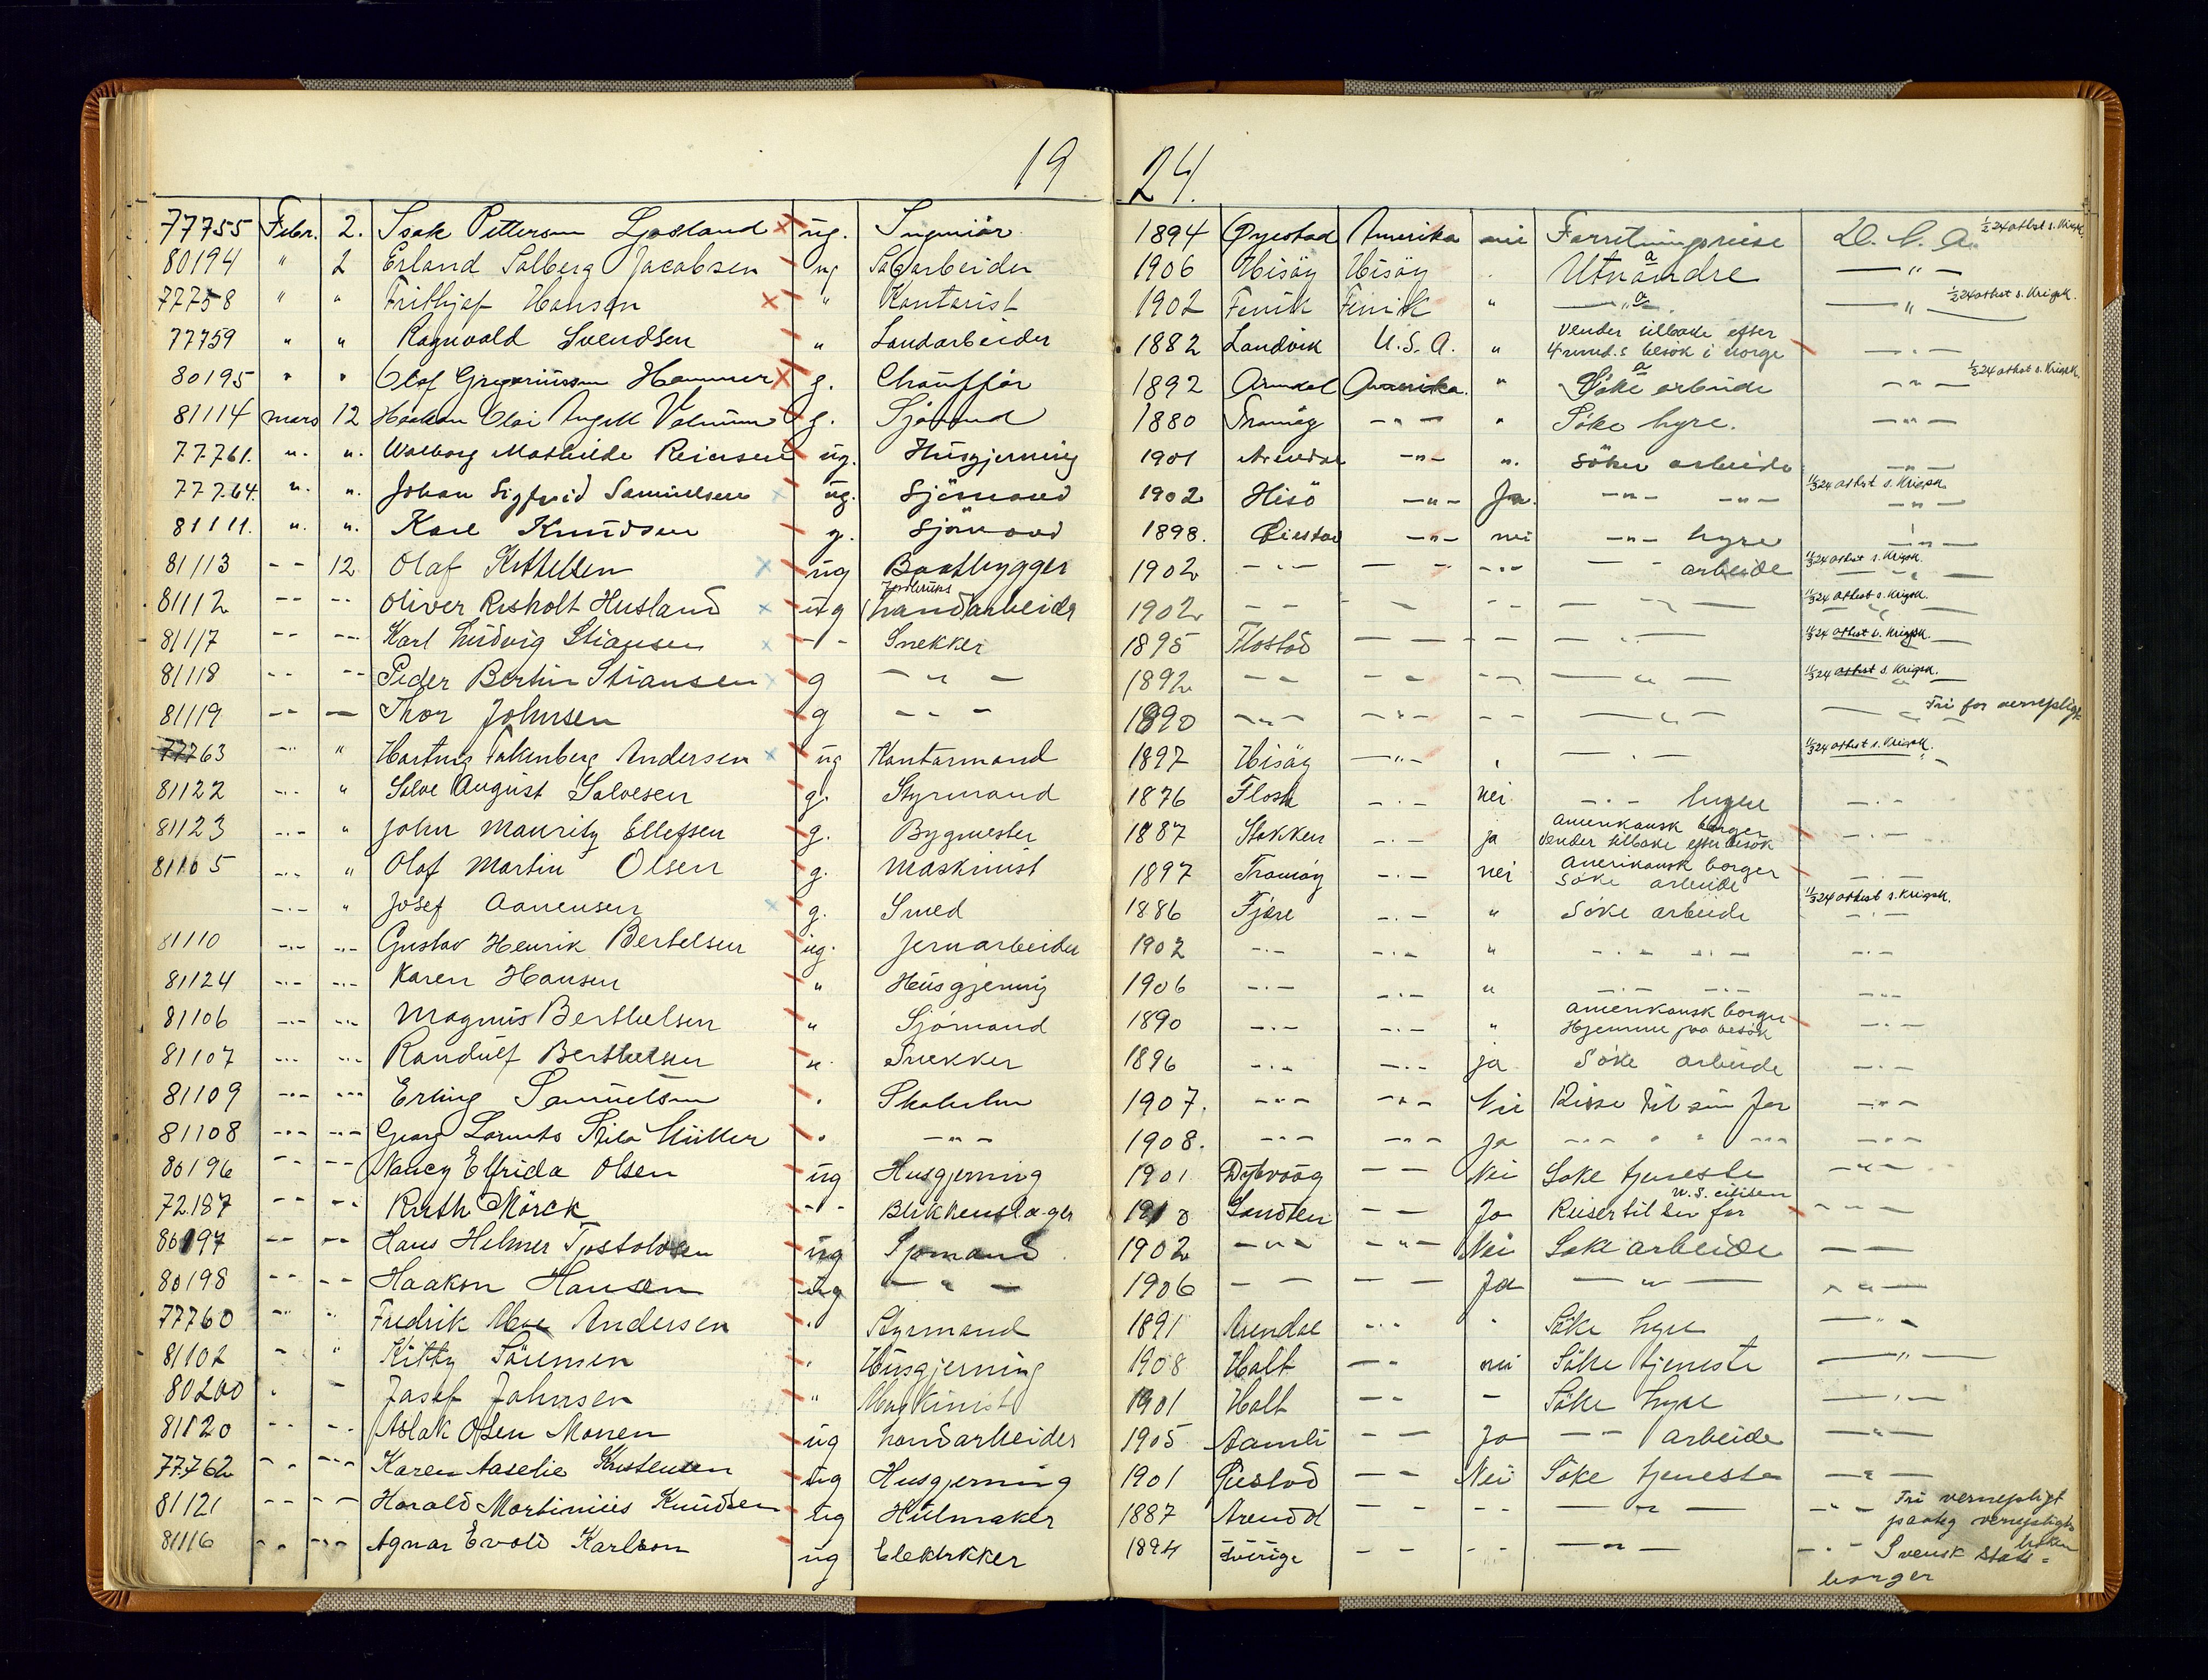 19 24.
77755 Febr. 2. Isak Pettersen Ljosland x ug. Ingeniör 1894 Øyestad Amerika nei Forretningsreise U.S.A. 1/2 24 attest s. Krigsk.
80194 " 2 Erland Solberg Jacobsen ug Sagarbeider 1906 Hisöy Hisöy Utvandre — " —
77758 " " Frithjof Hansen x " Kontorist 1902 Fevik Fevik " — " — — " — 1/2 24 attest s. Krigsk.
77759 " " Ragnvald Svendsen " Landarbeider 1882 Landvik U.S.A. " Vender tilbake efter
4 mnd.s besök i Norge — " —
80195 " " Olaf Gregoriussen Hammer x g. Chaufför 1892 Arendal Amerika. " Söke arbeide — " — 1/2 24 attest s. Krigsk.
81114 mars 12 Haakon Olai g. Sjömand 1880 Tromöy - " - " Söke hyre. - " -
77761. ". ". Walborg Mathilde Reiersen ug. Husgjerning 1901 Arendal - " - ". Söker arbeide - " -
77764. ". ". Johan Sigfrid Samuelsen x ug. Sjömand 1902 Hisö - " - Ja. - " - - " - 11/3 24 attest s. Krigsk. - " -
81111. ". ". Karl Knudsen g. Sjömand 1898. Öiestad - " - nei - " - hyre - " -
81113 - - 12 Olaf Kittelsen x ug Baatbygger 1902 - - - - - - - - - arbeide 11/3 24 attest s. Krigsk.
81112 - - - - Oliver Risholt Husland x ug Jordbruks
handarbeider 1902 - - - - - - — " — 11/3 24 attest s. Krigsk.
81117 - - - - Karl Ludvig Stiansen x - - Snekker 1895 Flostad - - - - - — " — 11/3 24 attest s. Krigsk.
81118 - - - - Peder Bertin Stiansen x g - " - 1892 - - - - - - — " — 11/3 24 attest s. Krigsk.
81119 - - — Thor Johnsen g - " - 1890 - " - - " - - - — " — — " — Fri for vernepligt
77763 - " - " Hartvig Falkenberg Andersen x ug Kontormand 1897 Hisöy - " - " — " — 11/3 24 attest s. Krigsk.
81122 - " - " Salve August Salvesen g. Styrmand 1876 Flosta - " - nei - " - hyre - " -
81123 - " - " John Mauritz Ellefsen g. Bygmester 1887 Stokken - " - ja Amerikansk borger
Vender tilbake efter besök - " -
81105 - " - " Olaf Martin Olsen g. Maskinist 1897 Tromöy - " - nei Amerikansk borger
Söke arbeide - " -
- " - " Josef Aanensen x g. Smed 1886 Fjære - " - " Söke arbeide 11/3 24 attest s. Krigsk. - " -
81110 - " - - " - Gustav Henrik Bertelsen ug. Jernarbeider 1902 - " - - " - " - " - - " - - " -
81124 - " - - " - Karen Hansen " Husgjerning 1906 - " - - " - " - " - - " - - " -
81106 - " - - " - Magnus Berthelsen " Sjömand 1890 - " - - " - " Amerikansk borger
Hjemme paa besök - " -
81107 - " - - " - Randulf Berthelsen ". Snekker 1896 - " - - " - ja Söke arbeide - " -
81109 - " - - " - Erling Samuelsen " Skoleelev 1907. - " - - " - Nei Reise til sin far - " -
81108 - " - - " - Georg Müller " - " - 1908. - " - - " - Ja - " - " " - " - - " -
80196 - - - - Nancy Elfrida Olsen ug Husgjerning 1901 Dypvaag - - Nei Söke tjeneste - " -
72187 - - - - Ruth Mörck - " - Blikkenslager Landvik - - Ja Reiser til sin far U.S. citisen - " -
80197 - - - - Hans Helmer Tjostolvsen ug Sjömand 1902 - " - - " - Nei Söke arbeide - -
80198 - - - - Haakon Hansen ug - " - 1906 - - - - Ja — " — - " -
77760 - " - " Fredrik Moe Andersen " Styrmand 1891 Arendal - " - " Söke hyre - " -
81102 - " Kitty Sörensen " Husgjerning 1908 Holt - - nei Söke tjeneste — " —
80200 " - Josef Johnsen " Maskinist 1901 Holt - - - Söke hyre - " -
81120 - - - - Aslak Olsen Monen ug handarbeider 1905 Aamli - - Ja - - arbeide - " -
77762 - - - - Karen Aaselie Kristensen ug Husgjerning 1901 Öiestad - - Nei Söke tjeneste - " -
81121 - - - - Harald Martinius Knudsen ug Hulmaker 1887 Arendal - - - - — " — - " - Fri vernepligt
paateg vernepligts
boken
81116 - - - - Agnar Evald Karlson ug Elektrikker 1894 Sverige - - - - — " — - " - Svensk stats-
borger